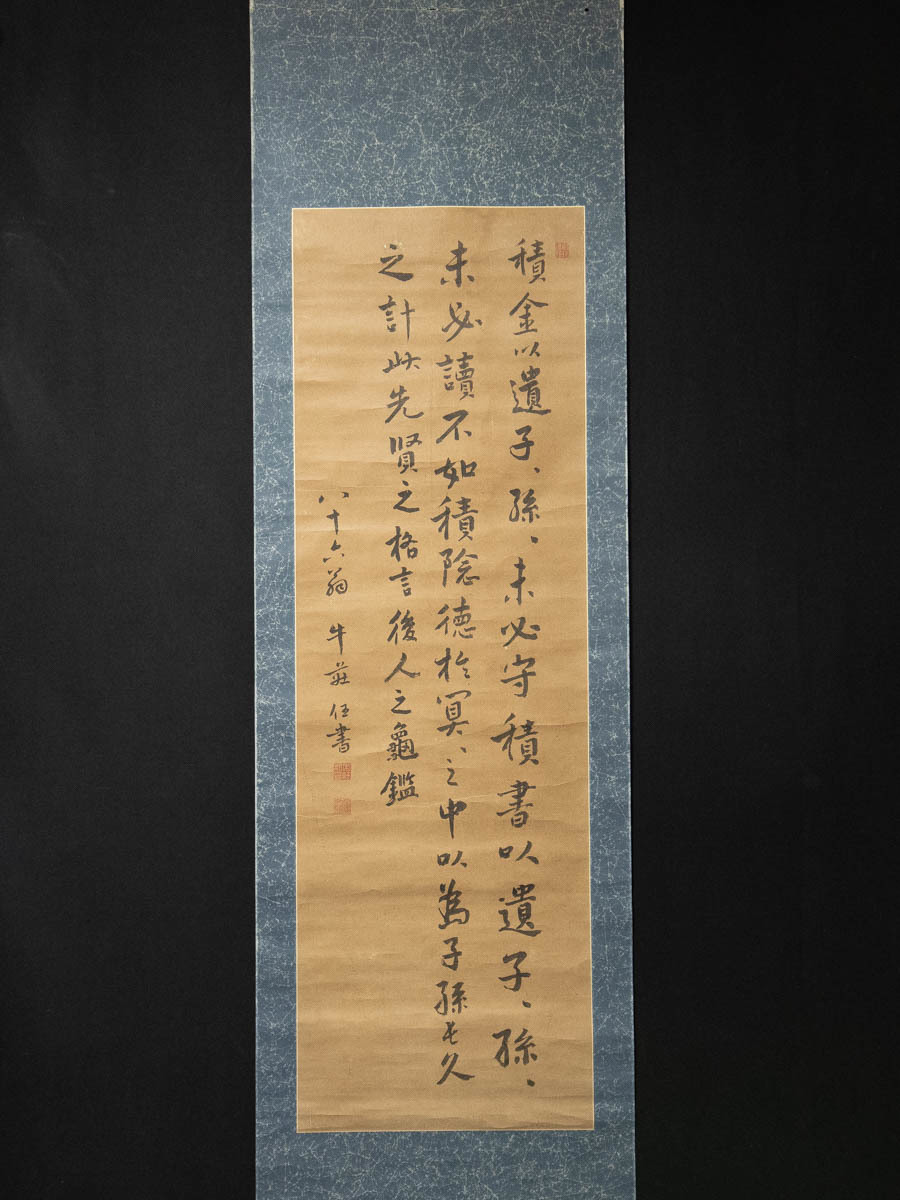 積金以遺子、孫、未必守積書以遺子、孫、
未必讀不如積陰德於冥、之中以為子孫長久
之計此先賢之格言後人之龜鑑
八十六翁 牛莊 任書